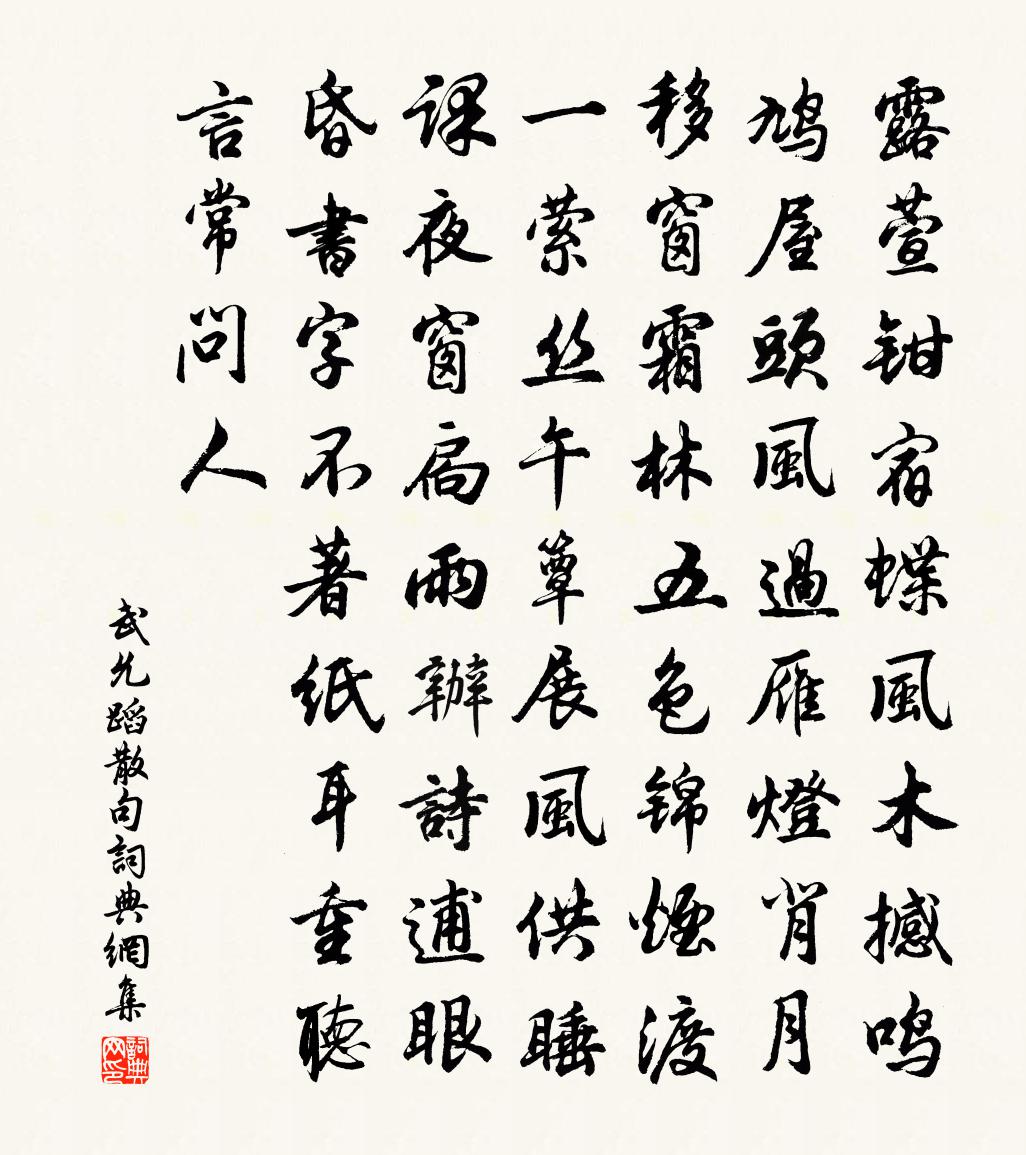 露萱钳宿蝶風木撼鸣
鳩屋頭風過雁燈背月
移窗霜林五色锦煙渡
一萦丝午簟展風供睡
課夜窗扃雨辦詩逋眼
昏書字不著纸耳重聽
言常問人
武允蹈散句詞典網集